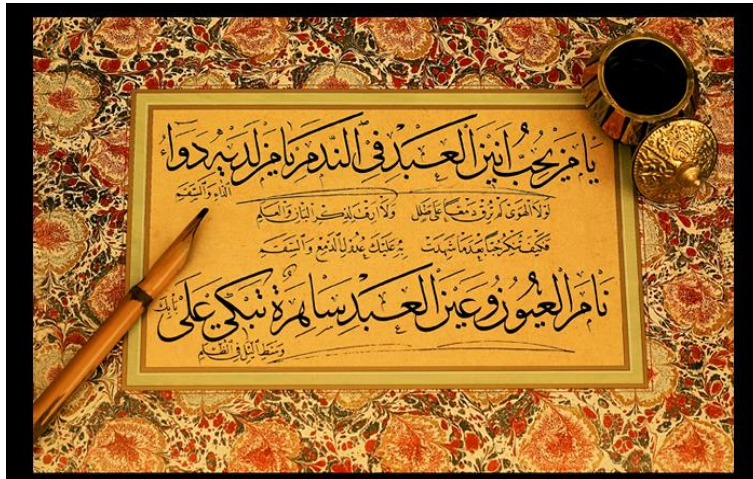 يَا مَنْ يُحِبُّ اَنِينَ الْعَبْدِ فِي النَّدَمِ يَا مَنْ لَدَيْهِ دَوَاءُ
الدَّاءِ وَالسَّقَمِ
لَوْلَا الْهَوَى لَمْ تُرِقْ دَمْعًا عَلَى طَلَلٍ وَلَا اَرِقْتَ لِذِكْرِ الْبَانِ وَالْعَلَمِ
فَكَيْفَ تُنْكِرُ حُبًّا بَعْدَمَا شَهِدَتْ بِهِ عَلَيْكَ عُدُولُ الدَّمْعِ وَالسَّقَمِ
نَامَ الْعُيُونُ وَعَيْنُ الْعَبْدِ سَاهِرَةٌ تَبْكِي عَلَى بَابِكَ
وَسَطَ الَّيْلِ فِي الظُّلَمِ